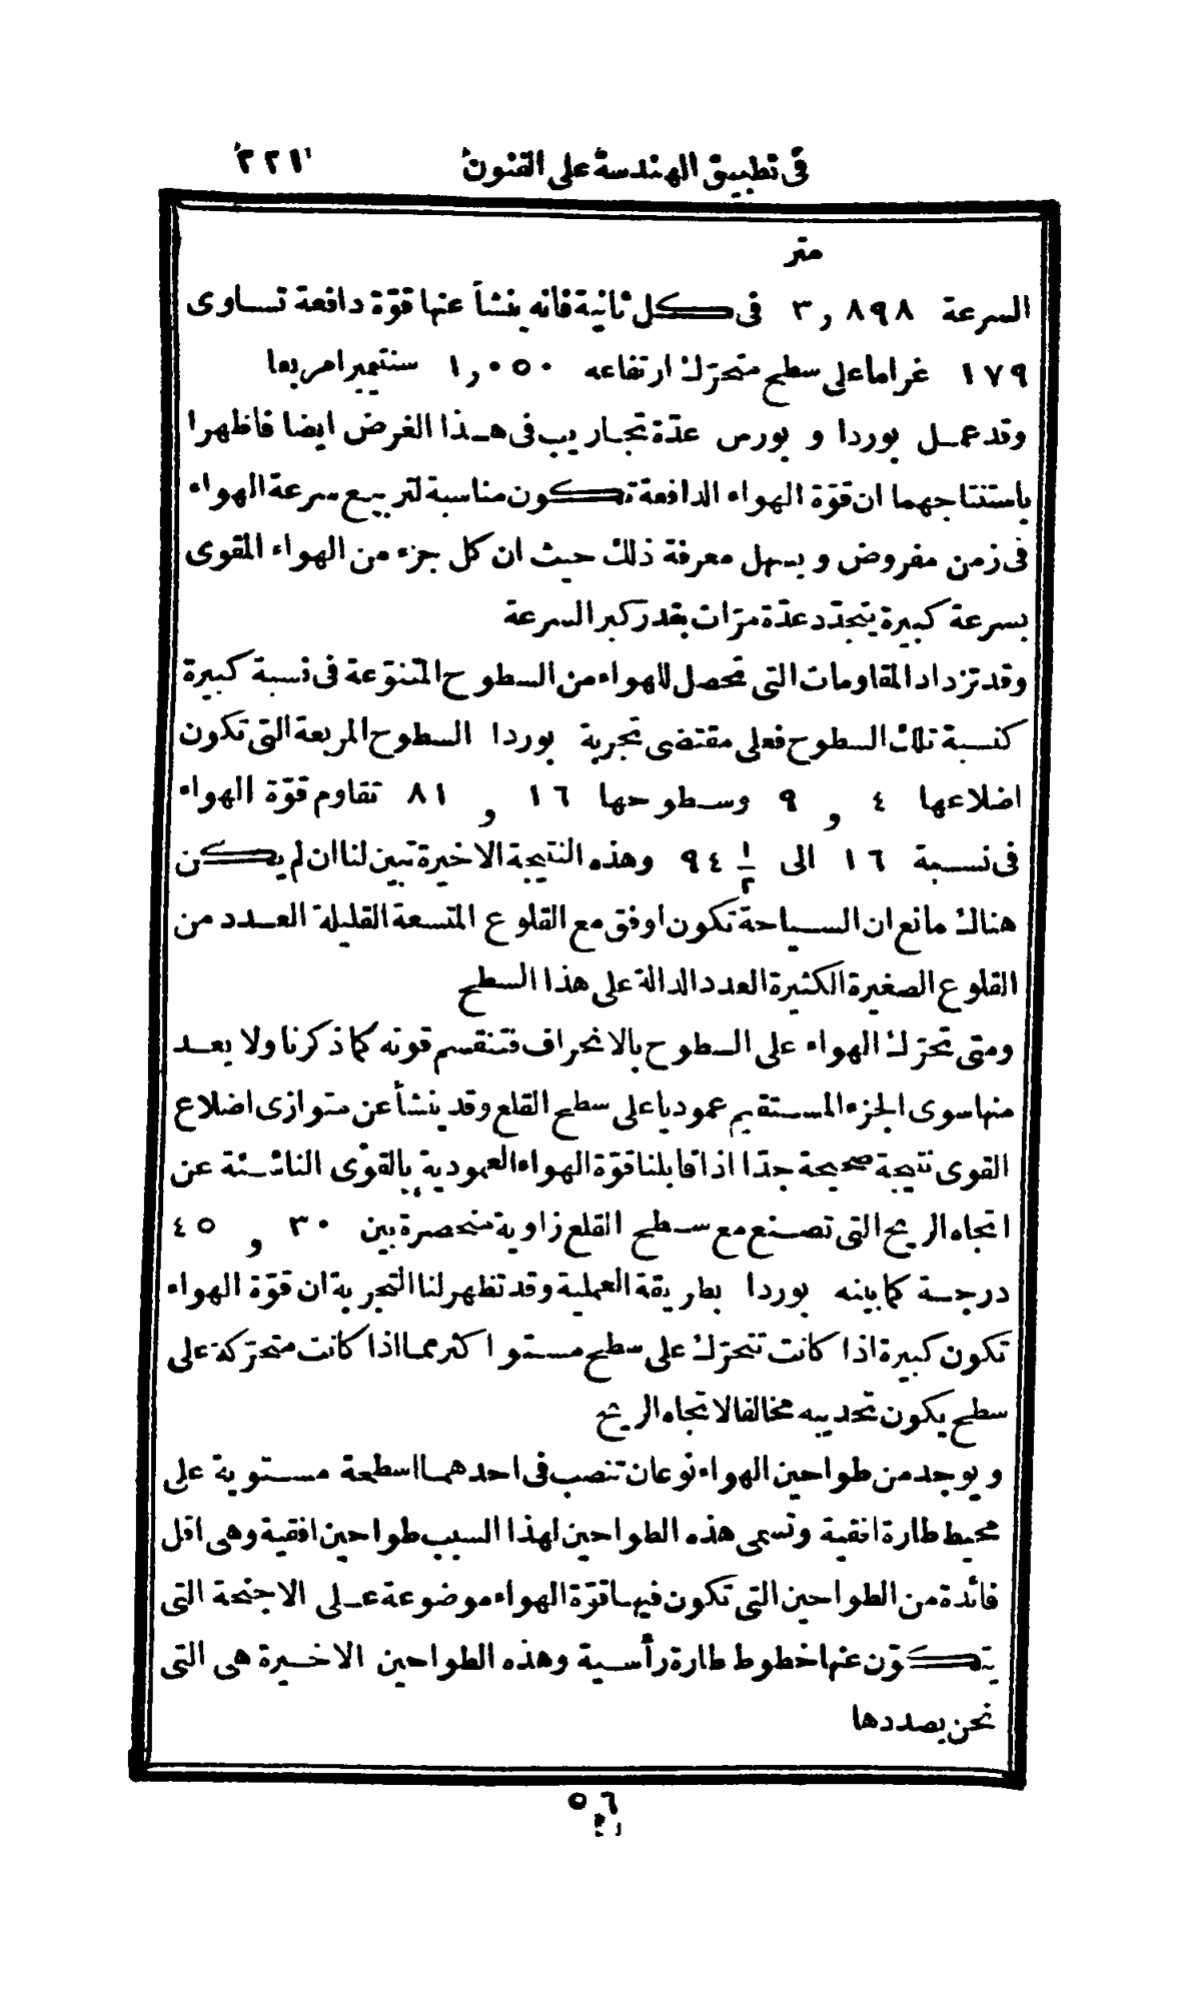 فى تطبيق الهندسة على الفنون ٢٢١
متر
السرعة ٣,٨٩٨ فى كل ثانية فانه ينشأ عنها قوّة دافعة تساوى
١٧٩ غراما على سطح متحرّك ارتفاعه ١,٠٥٠ سنتيميرا مربعا
وقد عمل بوردا و بورس عدّة تجاريب فى هذا الغرض ايضا فاظهرا
باستنتاجهما ان قوّة الهواء الدافعة تكون مناسبة لتربيع سرعة الهواء
فى زمن مفروض ويسهل معرفة ذلك حيث ان كل جزء من الهواء المقوى
بسرعة كبيرة يتجدّد عدّة مرّات بقدر كبر السرعة
وقد تزداد المقاومات التى تحصل للهواء من السطوح المتنوّعة فى نسبة كبيرة
كنسبة تلك السطوح فعلى مقتضى تجربة بوردا السطوح المربعة التى تكون
اضلاعها ٤ و ٩ وسطوحها ١٦ و ٨١ تقاوم قوّة الهواء
فى نسبة ١٦ الى ١/٢ ٩٤ وهذه النتيجة الاخيرة تبين لنا ان لم يكن
هناك مانع ان السياحة تكون اوفق مع القلوع المتسعة القليلة العدد من
القلوع الصغيرة الكثيرة العدد الدالة على هذا السطح
ومتى تحرّك الهواء على السطوح بالانحراف فتنقسم قوته كما ذكرنا ولا يعد
منها سوى الجزء المستقيم عموديا على سطح القلع وقد ينشأ عن متوازى اضلاع
القوى نتيجة صحيحة جدّا اذا قابلنا قوّة الهواء العمودية بالقوى الناشئة عن
اتجاه الريح التى تصنع مع سطح القلع زاوية منحصرة بين ٣٠ و ٤٥
درجة كما بينه بوردا بطريقة العملية وقد تظهر لنا التجربة ان قوّة الهواء
تكون كبيرة اذا كانت تتحرّك على سطح مستو اكثر مما اذا كانت متحرّكة على
سطح يكون تحديبه مخالفا لاتجاه الريح
ويوجد من طواحين الهواء نوعان تنصب فى احدهما اسطحة مستوية على
محيط طارة افقية وتسمى هذه الطواحين لهذا السبب طواحين افقية وهى اقل
فائدة من الطواحين التى تكون فيها قوّة الهواء موضوعة على الاجنحة التى
يتكوّن عنها خطوط طارة رأسية وهذه الطواحين الاخيرة هى التى
نحن بصددها
٥٦